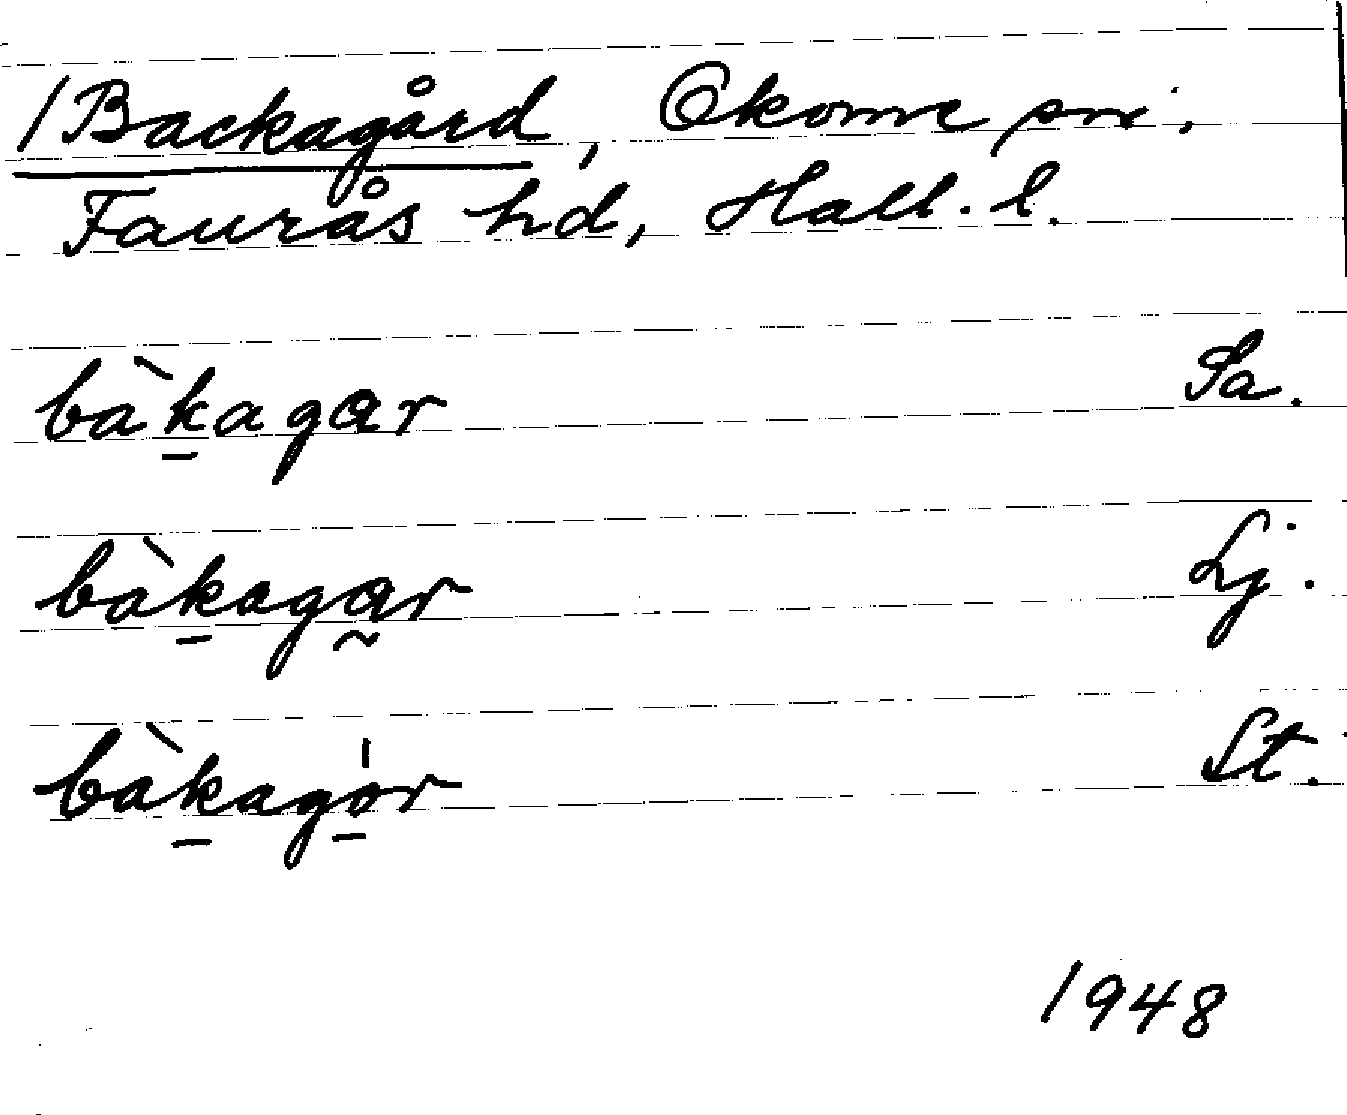 /Backagård, Okome sn.
Faurås hd, Hall. l.
bàk̠agɑr Sa.
bàk̠agɑ̰r Lj.
bàk̠ago̠̍r St.
1948